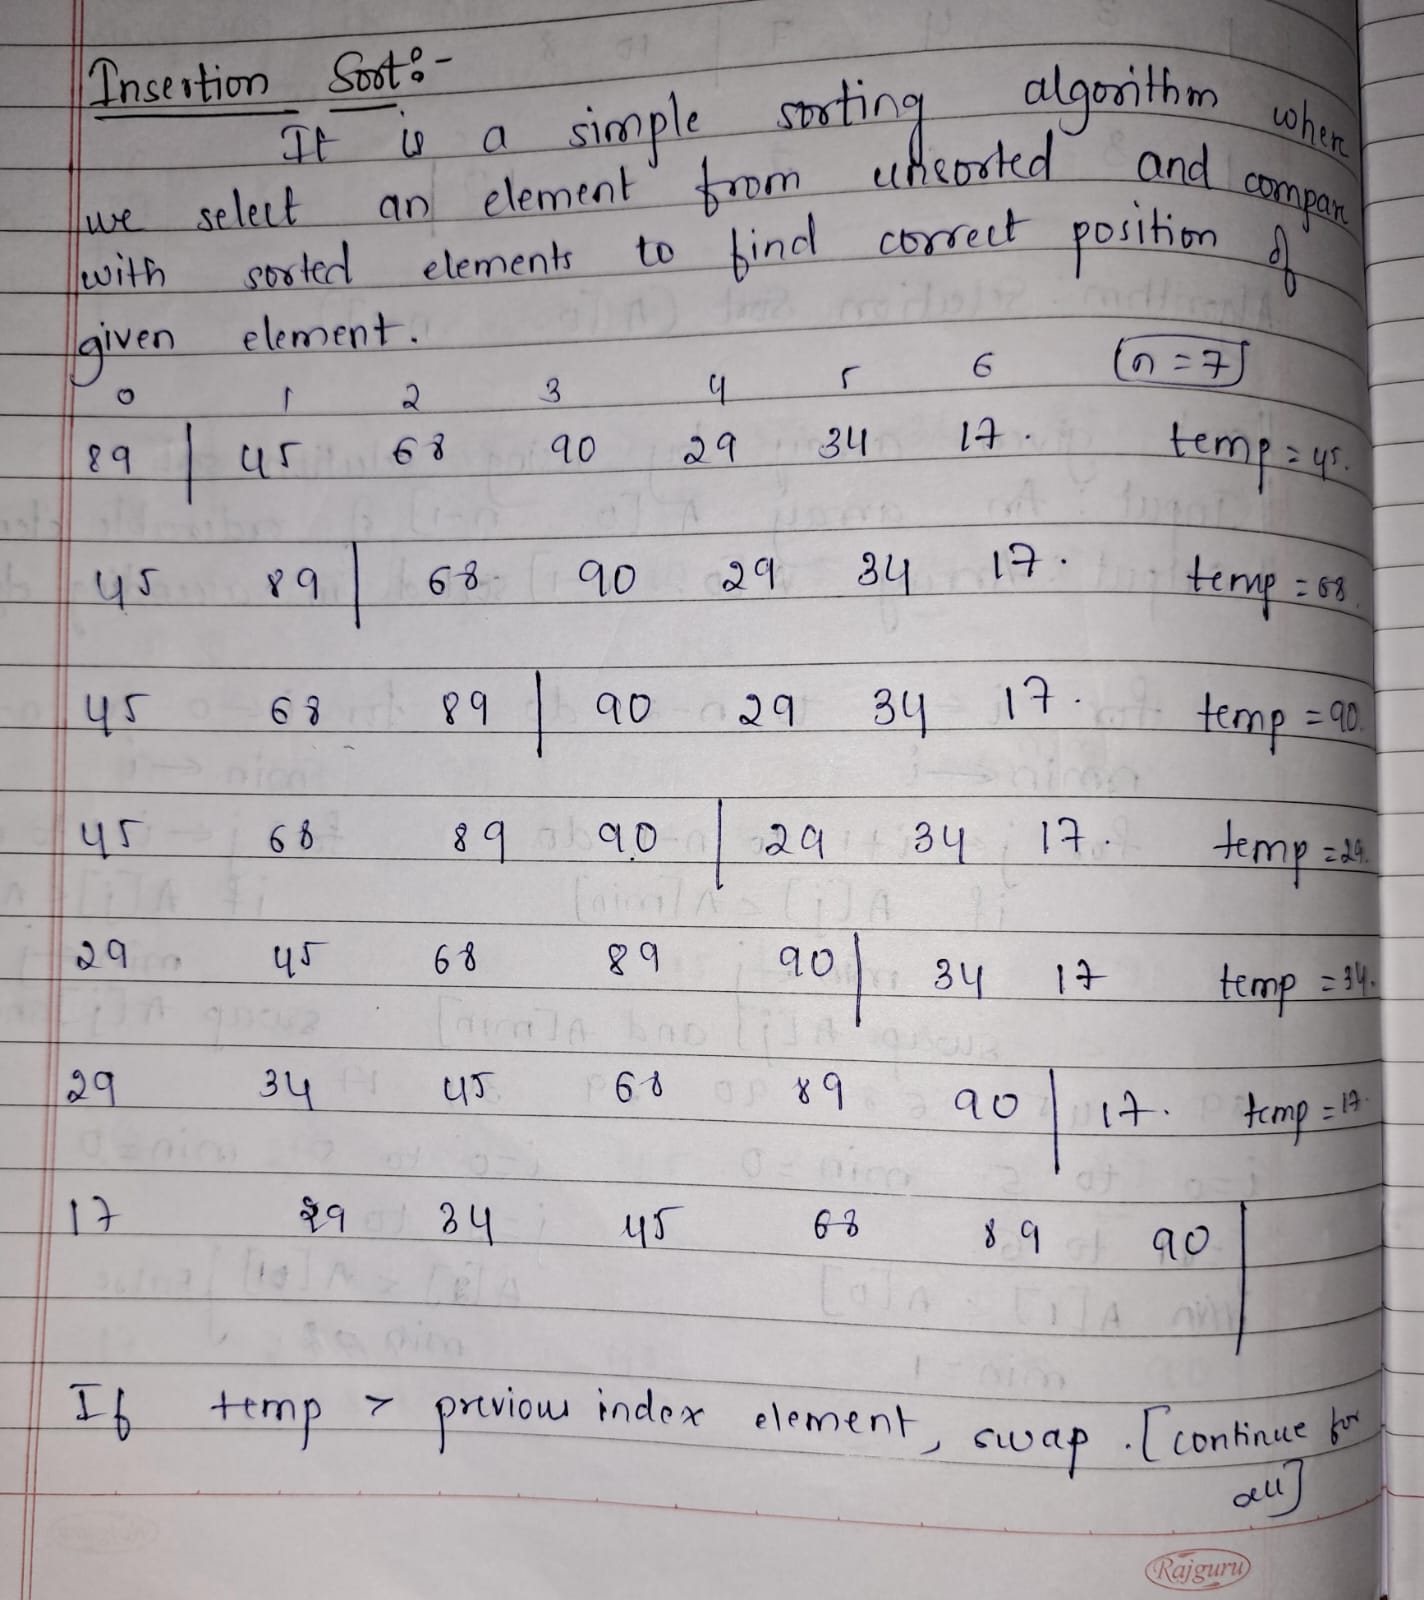 Insertion Sort :-
It is a simple sorting algorithm where
we select an element from unsorted and compare
with sorted elements to find correct position of
given element.
0 1 2 3 4 5 6 (n = 7)
89 | 45 68 90 29 34 17. temp = 45.
45 89 | 68 90 29 34 17. temp = 68.
45 68 89 | 90 29 34 17. temp = 90.
45 68 89 90 | 29 34 17. temp = 29.
29 45 68 89 90 | 34 17 temp = 34.
29 34 45 68 89 90 | 17. temp = 17.
17 29 34 45 68 89 90 |
If temp > previous index element, swap. [continue for
all]
Rajguru